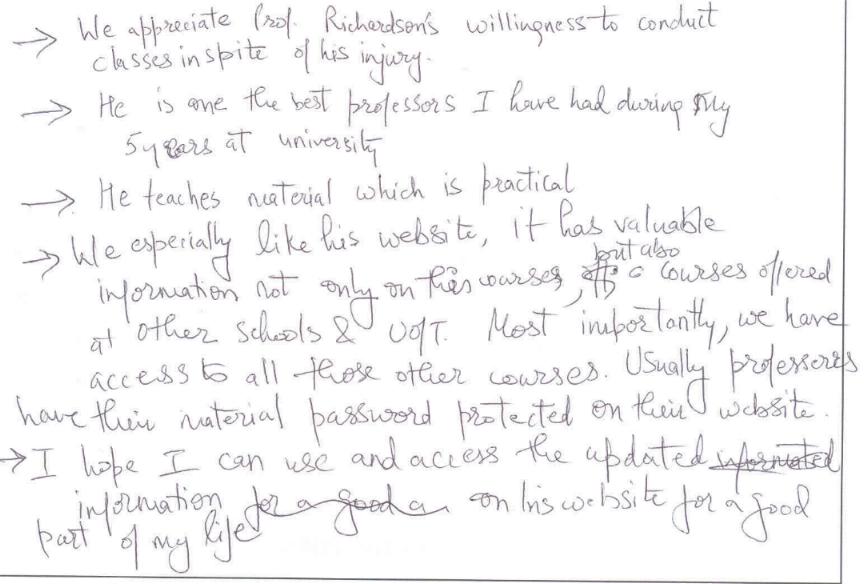 → We appreciate Prof. Richardson's willingness to conduct
classes inspite of his injury.
→ He is one the best professors I have had during my
5 years at university
→ He teaches material which is practical
→ We especially like his website, it has valuable
but also
information not only on this courses, courses offered
at other schools & UofT. Most importantly, we have
access to all those other courses. Usually professeres
have their material password protected on their website.
→ I hope I can use and access the updated informated
information for a good a on his website for a good
part of my life